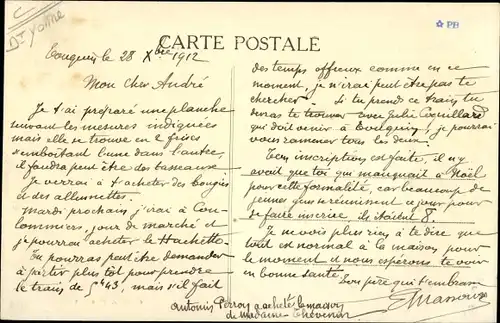 C
Dt Yonne
PB
CARTE POSTALE
Touquin le 28 Xbre 1912
Mon cher André
Je t'ai préparé une planche
suivant les mesures indiquées
mais elle se trouve en 2 frises
s'emboîtant l'une dans l'autre,
il faudra peut être des tasseaux
Je verrai à t'acheter des bougies
et des allumettes.
Mardi prochain j'irai à Cou-
lommiers, jour de marché et
je pourrai acheter le Hachette.
Tu pourras peut être demander
à partir plus tôt pour prendre
le train de 5h43, mais s'il fait
des temps affreux comme en ce
moment, je n'irai peut être pas te
chercher. Si tu prends ce train tu
devras te trouver avec Julie
qui doit venir à , je pourrai
vous ramener tous les deux.
Ton inscription est faite, il n'y
avait que toi qui manquait à Noël
pour cette formalité, car beaucoup de
jeunes gens se réunissent ce jour pour
se faire inscrire, ils étaient 8.
Je ne vois plus rien à te dire que
tout est normal à la maison pour
le moment et nous espérons te voir
en bonne santé.
Ton père qui t'embrasse
Antonin Perroy a acheté la maison
de madame Thévenin